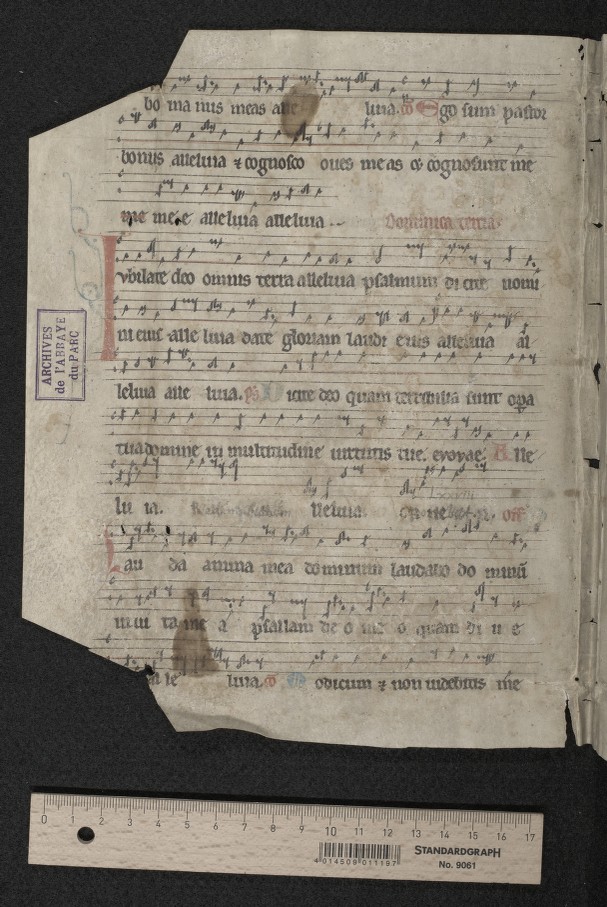 bo ma nus meas alle luia. co Ego sum pastor
bonus alleluia ⁊ cognosco oues meas et cognoscunt me
me mee alleluia alleluia Dominica tertia
Iubilate deo omnis terra alleluia psalmum dicite nomi
ni eius alle luia date gloriam laudi eius alleluia al
leluia alle luia. ps Dicite deo quam terribilia sunt opa
tua domine in multitudine uirtutis tue. evovae. Alle
lu ia. lleluia. off
Lau da anima mea dominum laudabo do minū
in ui ta me a psallam de o me o quam di u e
luia. co Modicum ⁊ non uidebitis me
ARCHIVES
de l'ABBAYE
du PARC
0 1 2 3 4 5 6 7 8 9 10 11 12 13 14 15 16 17
4 014509 011197
STANDARDGRAPH
No. 9061